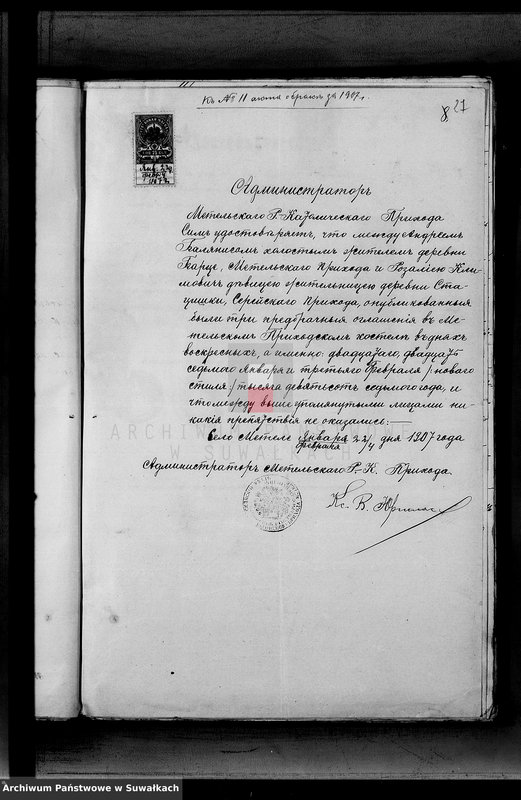 Къ № 11 акта о бракѣ за 1907 г.
27
Администраторъ
Метельскаго Р. Католическаго Прихода
Симъ удостовѣряетъ, что между Андреемъ
холостымъ жителемъ деревни
Метельскаго прихода и Розаліею Кли-
мовичъ дѣвицею жительницею деревни Ста-
Серейскаго Прихода, опубликованныя
были три предбрачныя оглашенія въ Ме-
тельскомъ Приходскомъ костелѣ въ дняхъ
воскресныхъ, а именно: двадцатаго, двадцать
седьмого Января и третьяго Февраля / новаго
стиля / тысяча девятьсотъ седьмого года, и
что между вышеупомянутыми лицами ни-
какія препятствія не оказались:
Село Метеле Января 22/ дня 1907 года
Февраля /4
Администраторъ Метельскаго Р.-К. Прихода.
Кс. В.
ARCHIWUM PAŃSTWOWE
W SUWAŁKACH
Archiwum Państwowe w Suwałkach